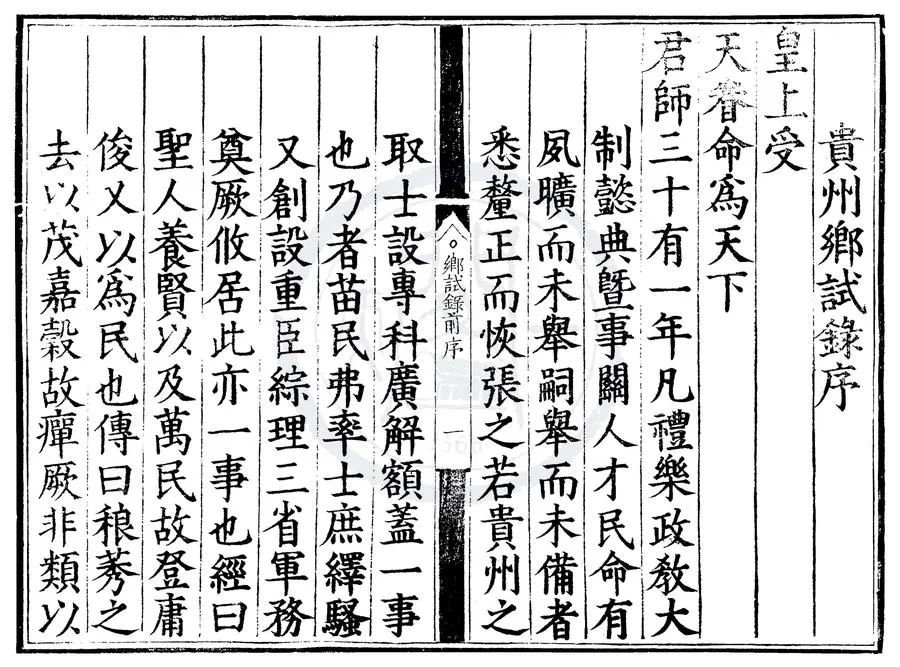 貴州鄉試錄序
皇上受
天眷命爲天下
君師三十有一年凡禮樂政敎大
制懿典曁事關人才民命有
夙曠而未舉嗣舉而未備者
悉釐正而恢張之若貴州之
鄉試錄前序 一
取士設專科廣解額蓋一事
也乃者苗民弗率士庶繹騷
又創設重臣綜理三省軍務
奠厥攸居此亦一事也經曰
聖人養賢以及萬民故登庸
俊乂以爲民也傳曰稂莠之
去以茂嘉穀故癉厥非類以